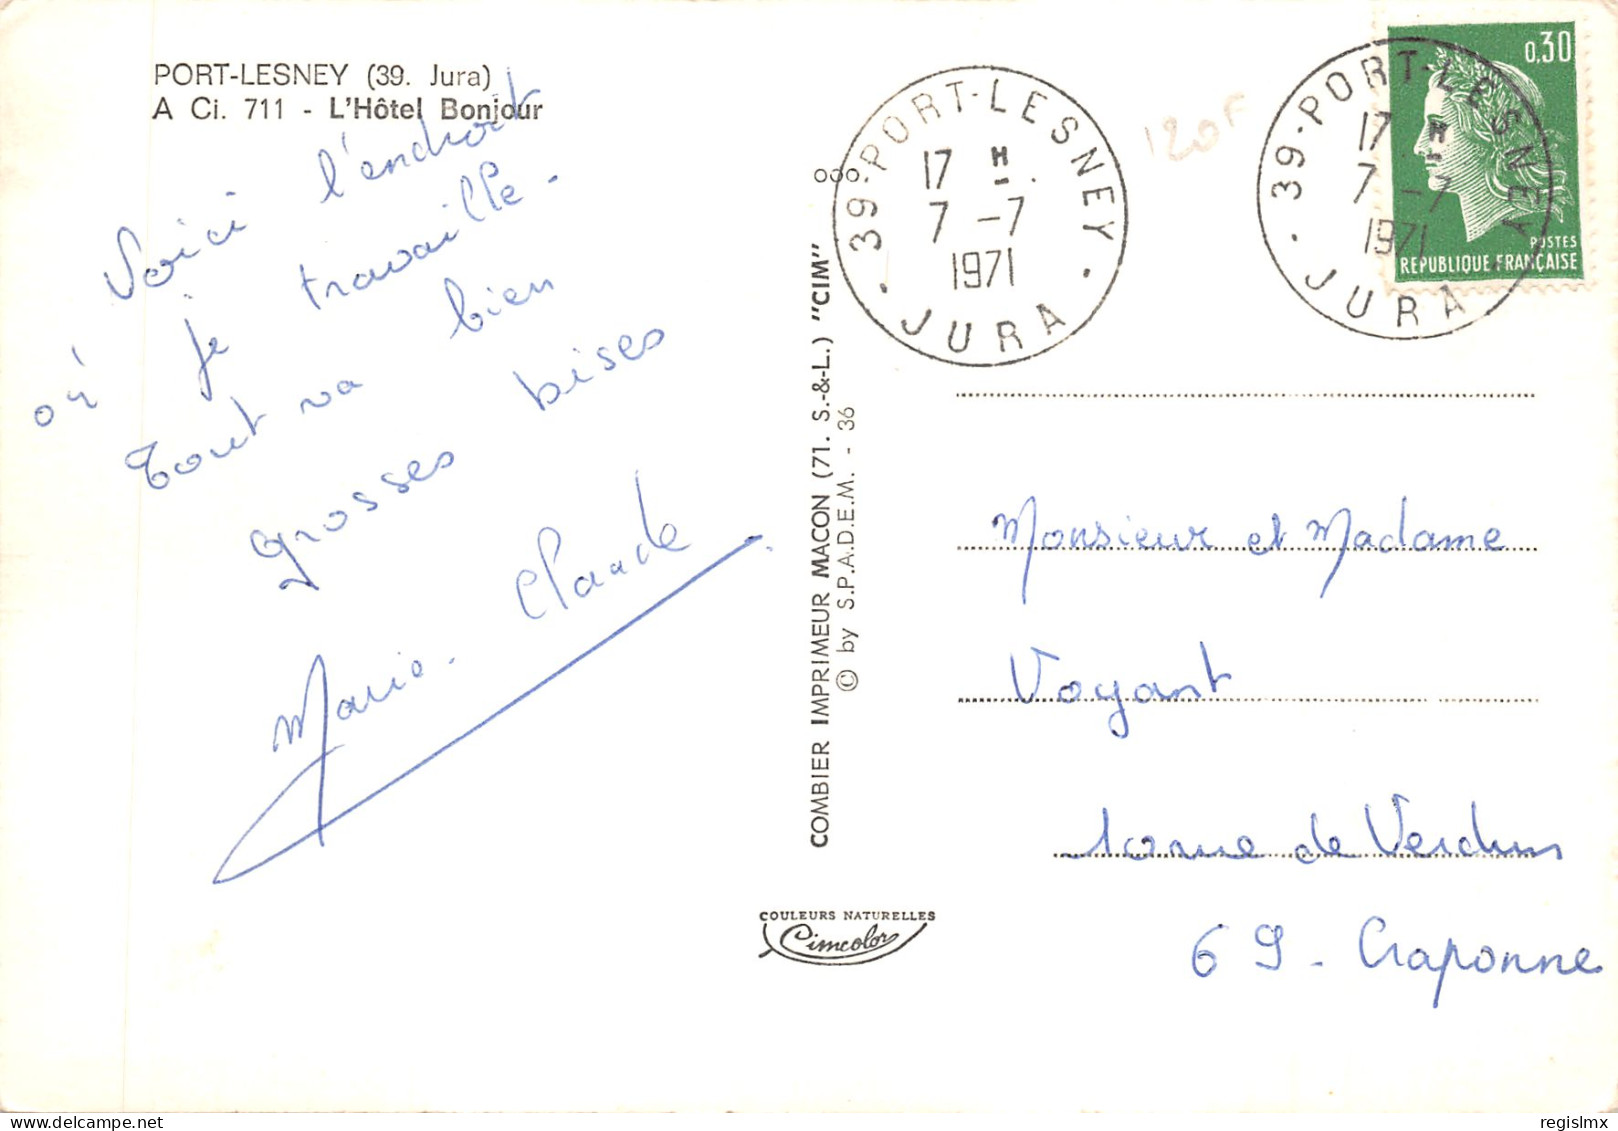 PORT-LESNEY (39. Jura)
A Ci. 711 - L'Hôtel Bonjour
Voici l'endroit
où je travaille.
Tout va bien
Grosses bises
Marie-Claude
COMBIER IMPRIMEUR MACON (71. S.-&-L.) "CIM"
© by S.P.A.D.E.M. - 36
COULEURS NATURELLES
Cimcolor
39-PORT-LESNEY
17 H
7 -7
1971
JURA
120F
39-PORT-LESNEY
17 H
7 -7
1971
JURA
0,30
POSTES
RÉPUBLIQUE FRANÇAISE
Monsieur et Madame
Voyant
1 rue de Verdun
69 - Craponne
regislmx